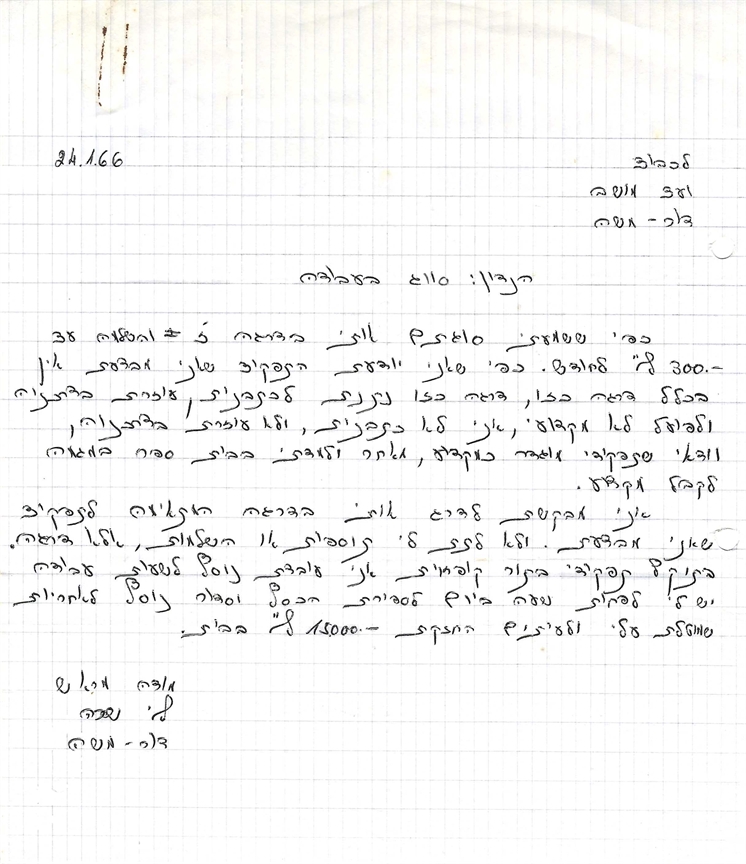 24.1.66
לכבוד
ועד מושב
דור - משה
הנדון: סווג בעבודה
כפי ששמעתי סוגתם אותי בדרגה ז' + והשלמה עד
300.- ל"י לחודש. כפי שאני יודעת התפקיד שאני מבצעת אין
בכלל דרגה כזו, דרגה כזו נתנת לכתבנית, עוזרת בדתנוה
ולפועל לא מקצועי, אני לא כתבנית, ולא עוזרת בדתנוה,
וודאי שתפקידי מוגדר כמקצוע, מאחר ולמדתי בבית ספר במגמה
לקבל מקצוע.
אני מבקשת לדרג אותי בדרגה המתאימה לתפקיד
שאני מבצעת. ולא לתת לי תוספות או השלמות, אלא דרגה.
בתוקף תפקידי בתור קופאית אני עובדת נוסף לשעות עבודה
יש לי לפחות שעה ביום לספירת הכסף וסדור נוסף לאחריות
שמוטלת עלי ולעיתים החזקת 15000.- ל"י בבית.
מודה מראש
לוי שרה
דור - משה